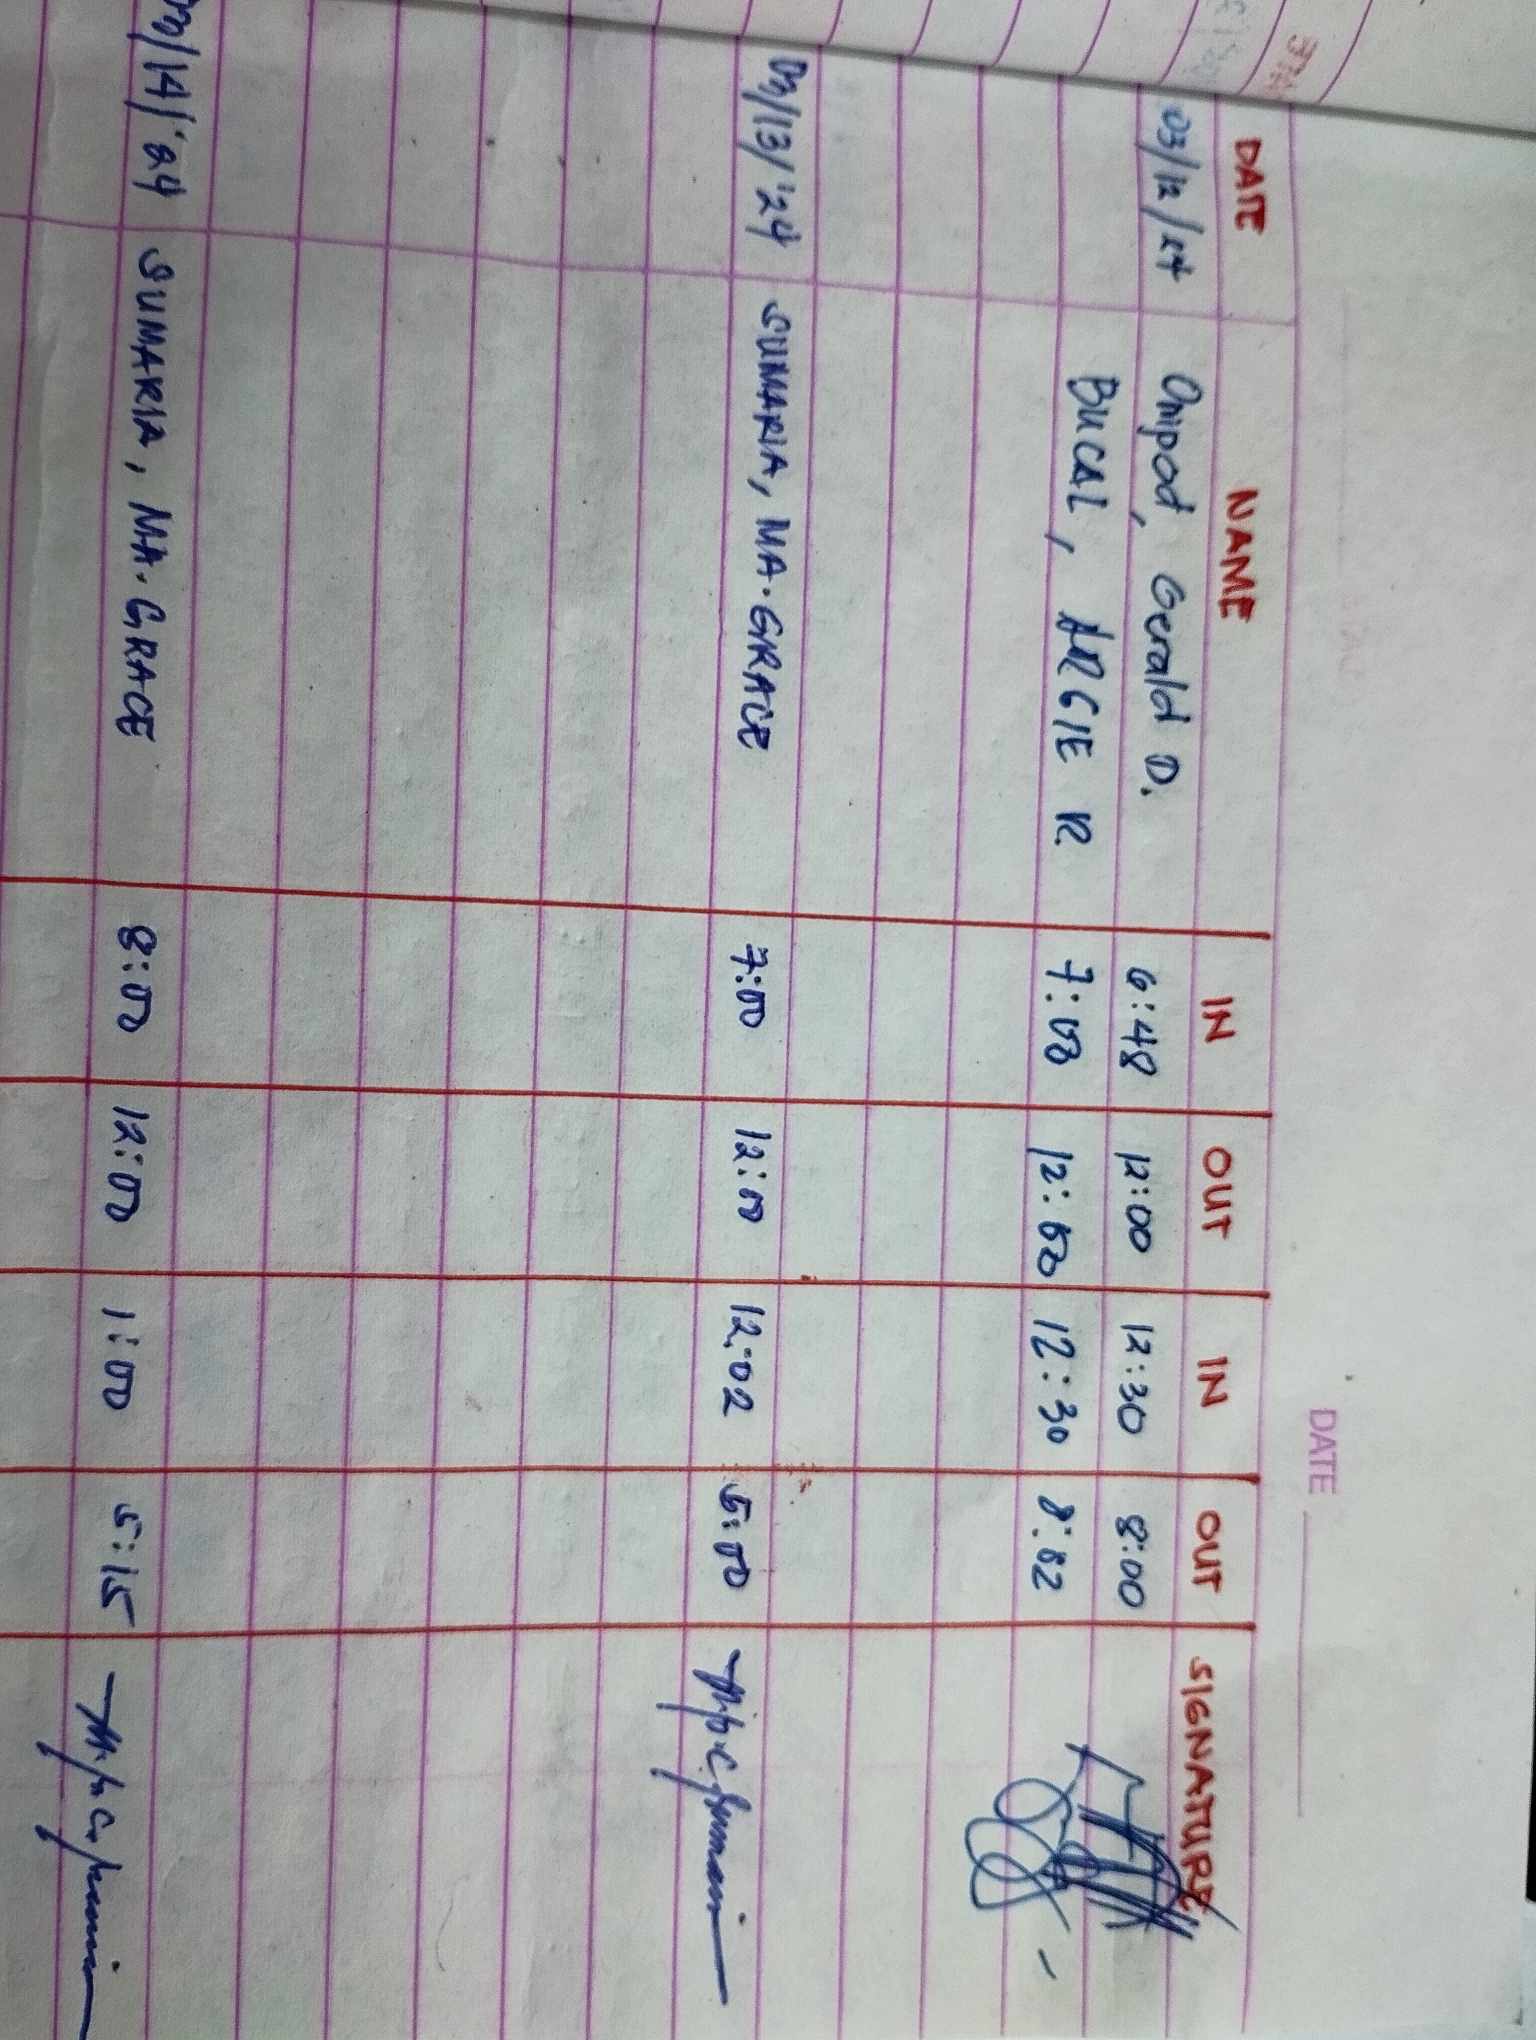 DATE
DATE NAME IN OUT IN OUT SIGNATURE
03/12/24 Onipod, Gerald D. 6:48 12:00 12:30 8:00
BUCAL, ARGIE R. 7:00 12:00 12:30 8:02
03/13/'24 SUMARIA, MA. GRACE 7:00 12:00 12:02 5:00
03/14/'24 SUMARIA, MA. GRACE 8:00 12:00 1:00 5:15